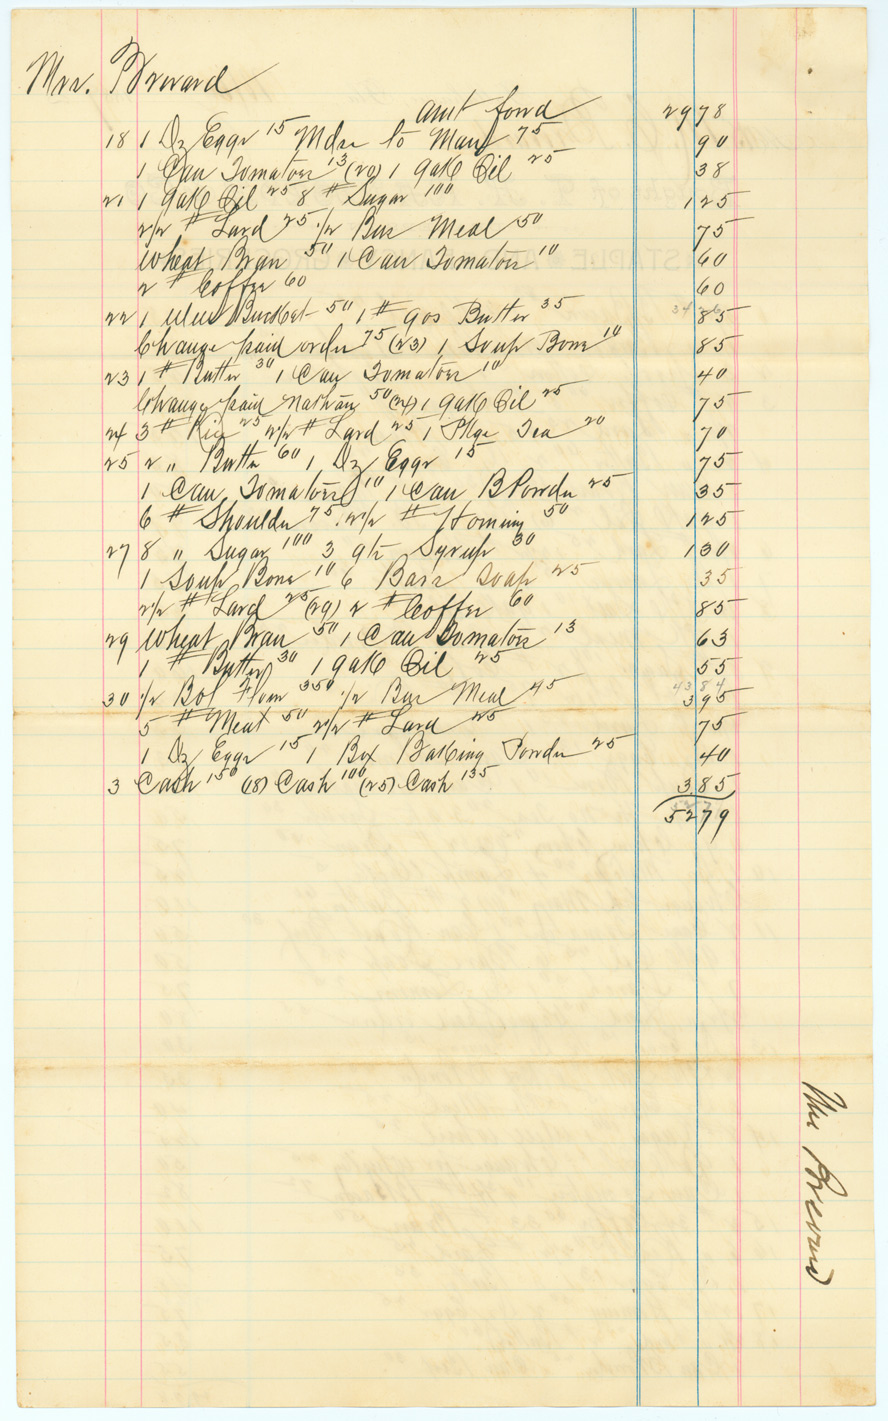 Mrs. Broward
amt forwd 29 78
18 1 Dz Eggs 15 Mdse to Man 75 90
1 Can Tomatoes 13 (20) 1 galk Oil 25 38
21 1 galk Oil 25 8 # Sugar 100 1 25
2 1/2 # Lard 25 1/2 Bus Meal 50 75
Wheat Bran 50 1 Can Tomatoes 10 60
2 # Coffee 60 60
22 1 Bucket 50 1 # gos Butter 35 85
Change paid order 75 (23) 1 Soup Bone 10 85
23 1 # Butter 30 1 Can Tomatoes 10 40
Change paid Nathan 50 (24) 1 galk Oil 25 75
24 3 # Rice 25 2 1/2 # Lard 25 1 Pkge Tea 20 70
25 2 " Butter 60 1 Dz Eggs 15 75
1 Can Tomatoes 10 1 Can B Powder 25 35
6 # Shoulder 75 2 1/2 # Hominy 50 1 25
27 8 " Sugar 100 3 qts Syrup 30 1 30
1 Soup Bone 10 6 Bars Soap 25 35
2 1/2 # Lard 25 (29) 2 # Coffee 60 85
29 Wheat Bran 50 1 Can Tomatoes 13 63
1 # Butter 30 1 galk Oil 25 55
43 84
30 1/2 Bbl Flour 350 1/2 Bus Meal 45 3 95
5 # Meat 50 2 1/2 # Lard 25 75
1 Dz Eggs 15 1 Box Baking Powder 25 40
3 Cash 150 (18) Cash 100 (25) Cash 135 3.85
52 79
Mrs Broward